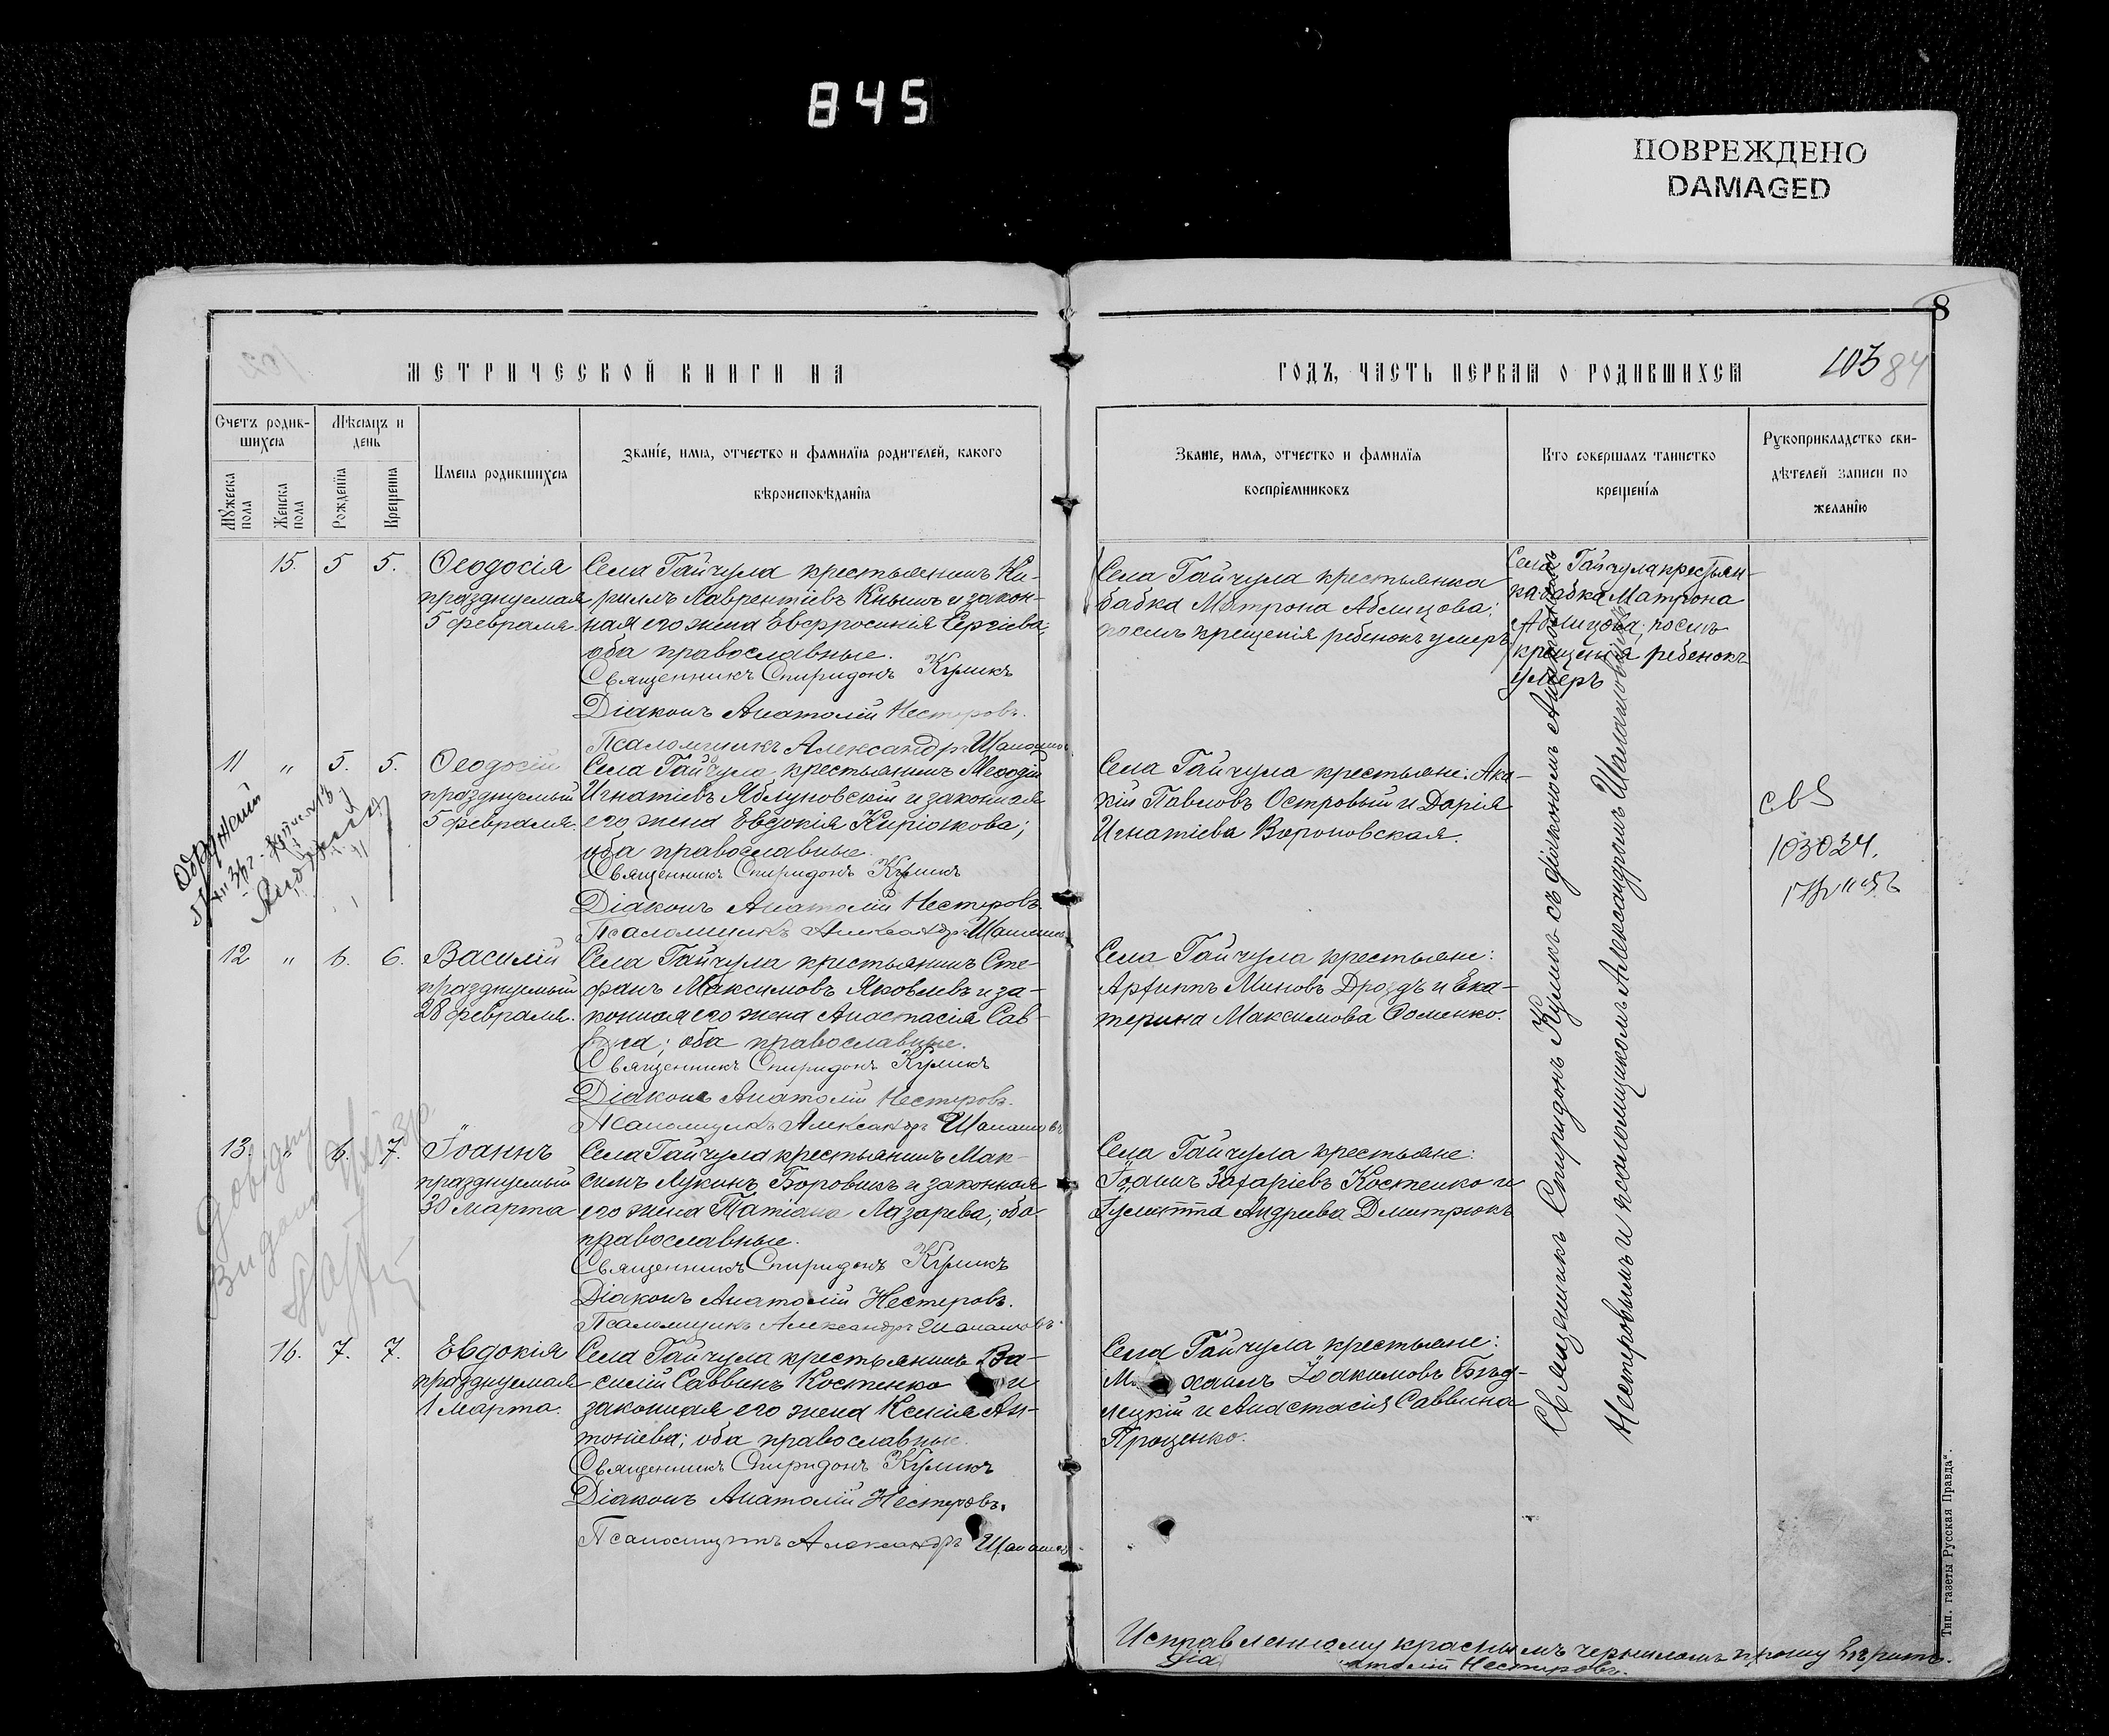 845
ПОВРЕЖДЕНО
DAMAGED
8
МЕТРИЧЕСКОЙ КНИГИ НА
ГОДЪ, ЧАСТЬ ПЕРВАЯ О РОДИВШИХСЯ
103 84
Счетъ родив-
шихся
Мѣсяцъ и
день
Мужеска
пола
Женска
пола
Рожденія
Крещенія
Имена родившихся
Званіе, имя, отчество и фамилія родителей, какого
вѣроисповѣданія
Званіе, имя, отчество и фамилія
воспріемниковъ
Кто совершалъ таинство
крещенія
Рукоприкладство сви-
дѣтелей записи по
желанію
15. 5 5. Ѳеодосія
празднуемая
5 февраля
Села Гайчула крестьянинъ Ки-
риллъ Лаврентіевъ Кнышъ и закон-
ная его жена Евфросинія Сергіева;
оба православные.
Священникъ Спиридонъ Куликъ
Діаконъ Анатолій Нестеровъ.
Псаломщикъ Александръ
Села Гайчула крестьянка
бабка Матрона Аблицова;
послѣ крещенія ребенокъ умеръ
Села Гайчула крестьян-
ка бабка Матрона
Аблицова; послѣ
крещенія ребенокъ
умеръ
11 " 5. 5. Ѳеодосій
празднуемый
5 февраля.
Села Гайчула крестьянинъ Меѳодій
Игнатіевъ Яблуновскій и законная
его жена Евдокія Кирікова;
оба православные.
Священникъ Спиридонъ Куликъ
Діаконъ Анатолій Нестеровъ.
Псаломщикъ Александръ
Села Гайчула крестьяне: Ака-
кій Павловъ Островый и Дарія
Игнатіева Вороновская.
103024.
12 " 6. 6. Василій
празднуемый
28 февраля.
Села Гайчула крестьянинъ Сте-
фанъ Максимовъ Яковлевъ и за-
конная его жена Анастасія Сав-
оба православные.
Священникъ Спиридонъ Куликъ
Діаконъ Анатолій Нестеровъ.
Псаломщикъ Александръ
Села Гайчула крестьяне:
Архиппъ Миновъ Дроздъ и Ека-
терина Максимова Ѳоменко.
13. " 6. 7. Іоаннъ
празднуемый
30 марта
Села Гайчула крестьянинъ Мак-
симъ Лукинъ Боровикъ и законная
его жена Татіана Лазарева; оба
православные.
Священникъ Спиридонъ Куликъ
Діаконъ Анатолій Нестеровъ.
Псаломщикъ Александръ
Села Гайчула крестьяне:
Іоаннъ Захаріевъ Костенко и
Іулитта Андреева Дмитрюкъ
16. 7. 7. Евдокія
празднуемая
1 марта.
Села Гайчула крестьянинъ Ва-
силій Саввинъ Костенко и
законная его жена Ксенія Ан-
тоніева; оба православные.
Священникъ Спиридонъ Куликъ
Діаконъ Анатолій Нестеровъ.
Псаломщикъ Александръ
Села Гайчула крестьяне:
Михаилъ Іоакимовъ Бѣд-
лецкій и Анастасія Саввина
Проценко.
Священникъ Спиридонъ Куликъ съ діакономъ Анатоліемъ
Нестеровымъ и псаломщикомъ Александромъ
Исправленному краснымъ черниломъ прошу вѣрить.
Діа атолій Нестеровъ.
Тип. газеты Русская Правда".